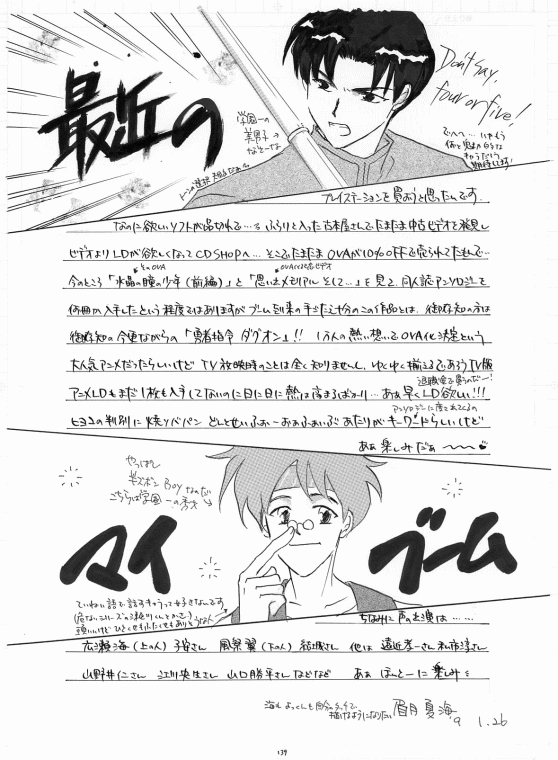 最近の
Don't say,
four or five!
学園一の
美男子→
なそーな
でへへ…
プレイステーションを買おうと思ったんです.
なのに欲しいソフトが品切れで…。ふらりと入った古本屋さんでたまたま中古ビデオを発見し
ビデオよりLDが欲しくなってCDSHOPへ… そこでたまたまOVAが10%OFFで売られてたもんで…
そのOVA
今のところ「水晶の瞳の少年(前編)」と「思い出メモリアルそして…」を見て、同人誌アンソロジーを
何冊か入手したという程度ではありますが ブーム到来の予感十分のこの作品とは、御存知の方は
御存知の 今更ながらの「勇者指令 ダグオン」!! 1万人の熱い想いでOVA化決定という
大人気アニメだったらしいけど TV放映時のことは全く知りません。ゆくゆく揃えるであろうTV版
退職金で買うのだー!
アニメLDもまだ1枚も入手してないのに日に日に熱は高まるばかり… あぁ早くLD欲しい!!!
ヒヨコの判別に 焼ソバパン どんとせいふぉー おぁふぁいぶ あたりがキーワードらしいけど
あぁ 楽しみだぁ〜〜
やっぱし
美ズボンBoyなのだ
こちらは学園一の秀才
マイ
ブーム
ていねい語で話すキャラって好きなんです
ちなみに 声の出演は……
広瀬海(上の人) 子安さん 風祭翼(下の人) 結城さん 他は 遠近孝一さん 私市淳さん
山野井仁さん 江川央生さん 山口勝平さん などなど あぁ ほんとーに 楽しみ
海も よっくんも自分のタッチで
描けるようになりたい
眉月 夏海
'9
1.26
139